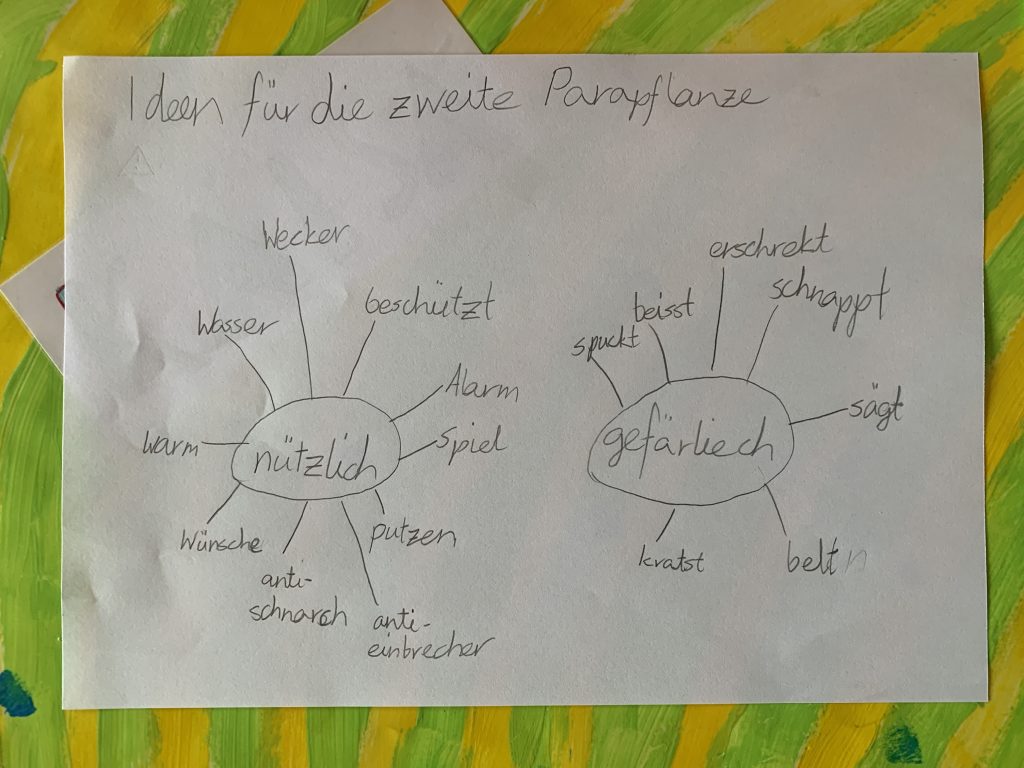 Ideen für die zweite Parapflanze
Wecker
Wasser
beschützt
Alarm
warm
nützlich
Spiel
Wünsche
putzen
anti-
schnarch
anti-
einbrecher
erschrekt
schnappt
beisst
spuckt
sägt
gefärliech
kratst
belt